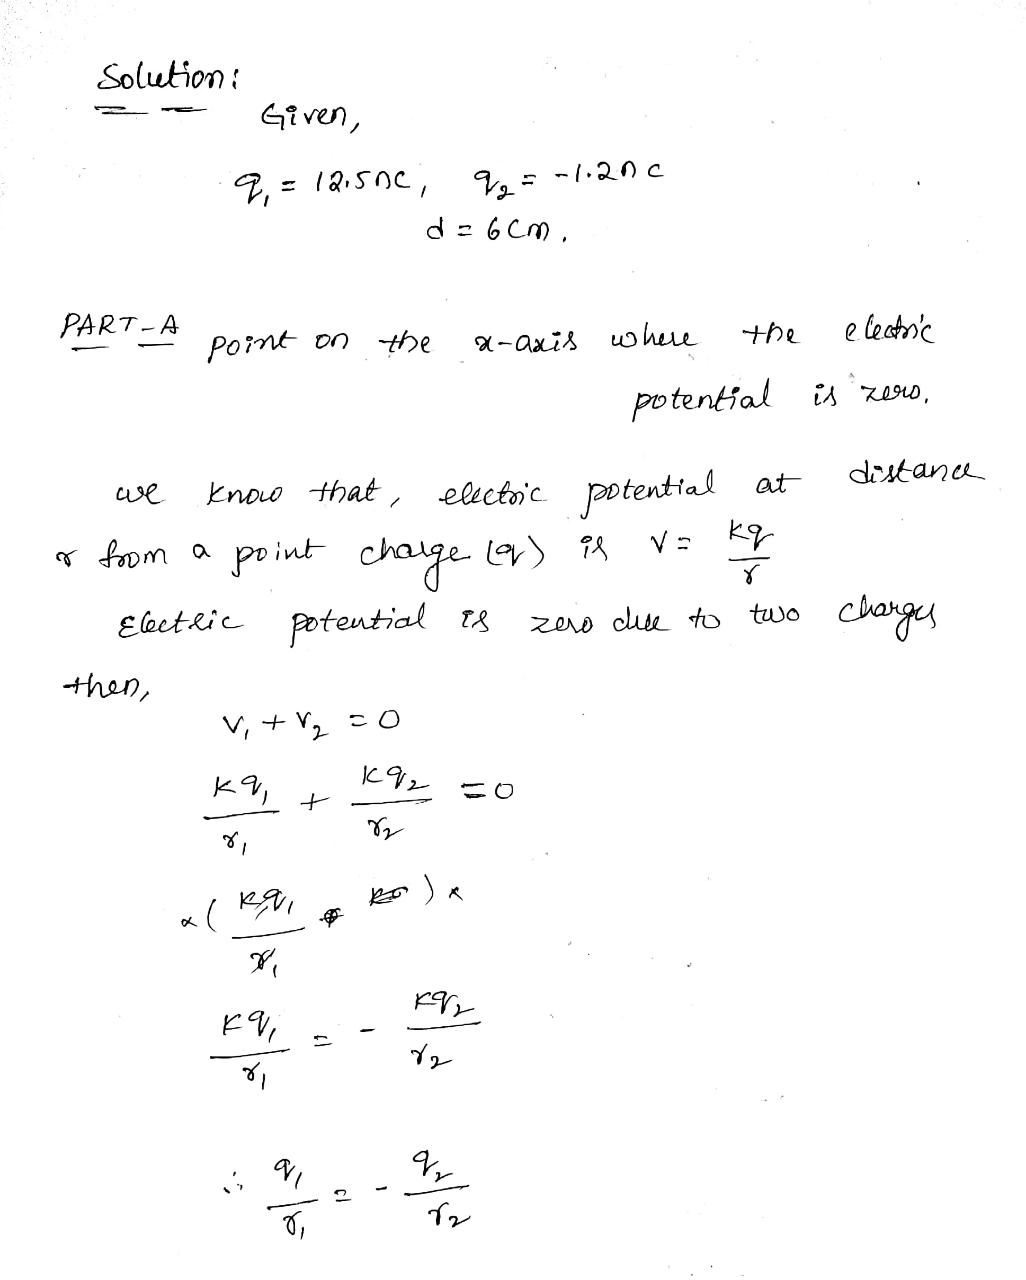 Solution:
Given,
q₁ = 12.5nC, q₂ = -1.2nC
d = 6cm.
PART-A point on the x-axis where the electric
potential is zero.
we know that, electric potential at distance
r from a point charge (q) is V = kq/r
Electric potential is zero due to two charges
then,
V₁ + V₂ = 0
kq₁/r₁ + kq₂/r₂ = 0
x( kq₁/r₁ )x
kq₁/r₁ = - kq₂/r₂
∴ q₁/r₁ = - q₂/r₂